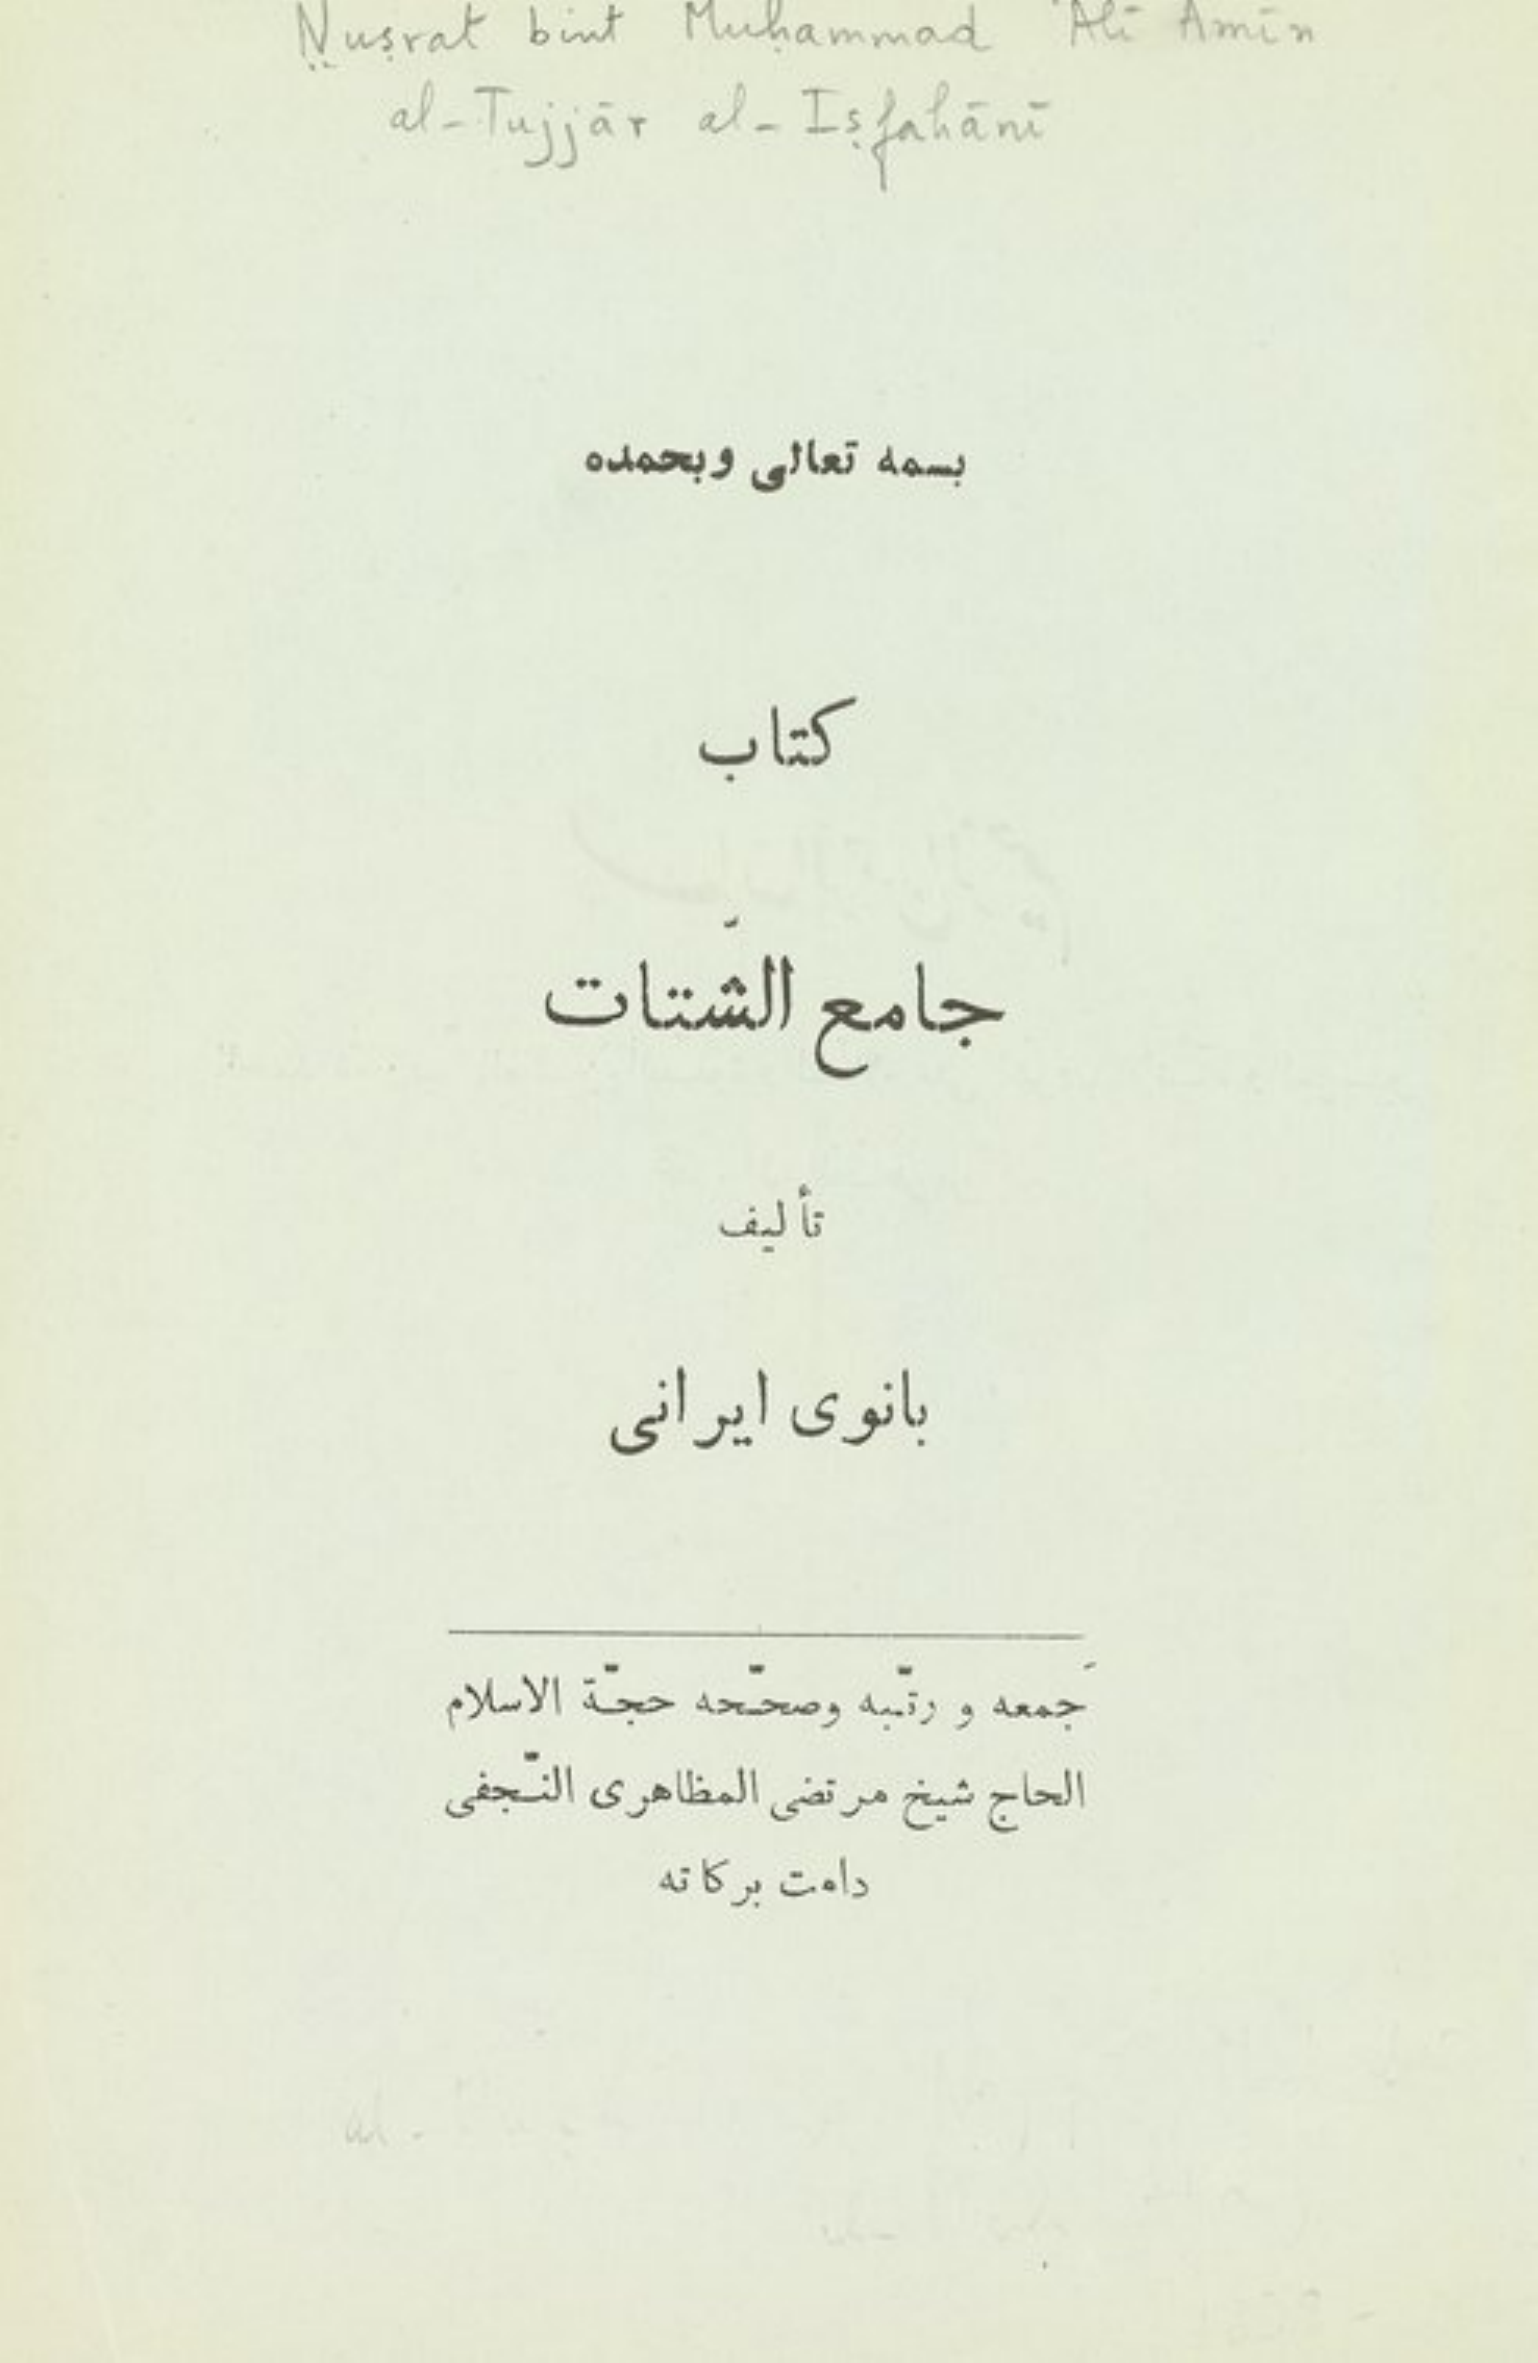 Nuṣrat bint Muḥammad ʿAlī Amīn
al-Tujjār al-Iṣfahānī
بسمه تعالی وبحمده
کتاب
جامع الشّتات
تألیف
بانوی ایرانی
جمعه و رتّبه وصحّحه حجّة الاسلام
الحاج شیخ مرتضی المظاهری النّجفی
دامت برکاته